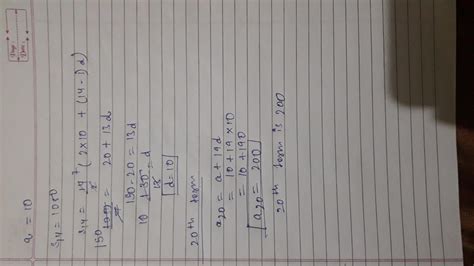 a = 10
S14 = 1050
S14 = 14/2 ( 2×10 + (14-1) d )
150
1050/7 = 20 + 13d
150 - 20 = 13d
10 130/13 = d
d = 10
20th term
a20 = a + 19d
= 10 + 19 × 10
= 10 + 190
a20 = 200
20th term is 200